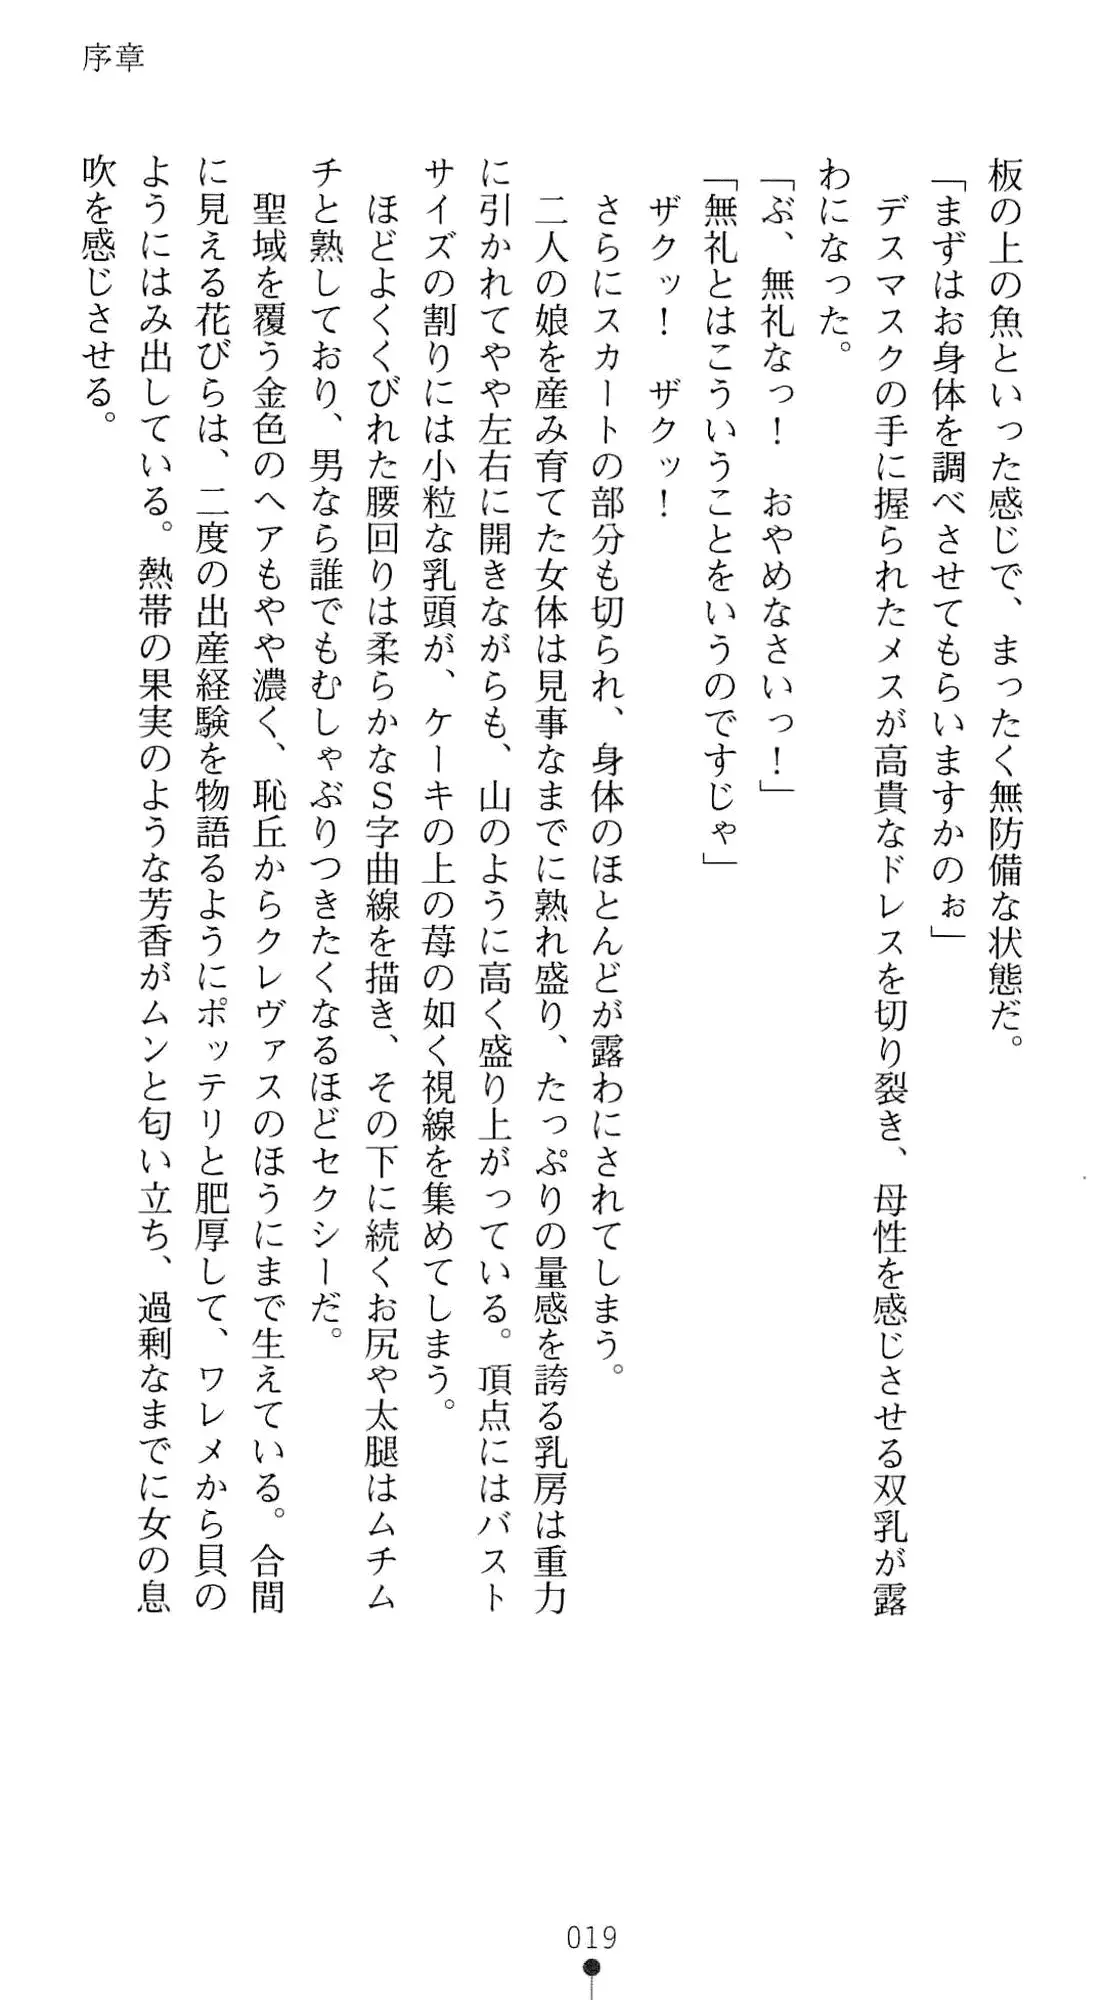 序章
板の上の魚といった感じで、まったく無防備な状態だ。
「まずはお身体を調べさせてもらいますかのぉ」
デスマスクの手に握られたメスが高貴なドレスを切り裂き、母性を感じさせる双乳が露
わになった。
「ぶ、無礼なっ！　おやめなさいっ！」
「無礼とはこういうことをいうのですじゃ」
ザクッ！　ザクッ！
さらにスカートの部分も切られ、身体のほとんどが露わにされてしまう。
二人の娘を産み育てた女体は見事なまでに熟れ盛り、たっぷりの量感を誇る乳房は重力
に引かれてやや左右に開きながらも、山のように高く盛り上がっている。頂点にはバスト
サイズの割りには小粒な乳頭が、ケーキの上の苺の如く視線を集めてしまう。
ほどよくくびれた腰回りは柔らかなＳ字曲線を描き、その下に続くお尻や太腿はムチム
チと熟しており、男なら誰でもむしゃぶりつきたくなるほどセクシーだ。
聖域を覆う金色のヘアもやや濃く、恥丘からクレヴァスのほうにまで生えている。合間
に見える花びらは、二度の出産経験を物語るようにポッテリと肥厚して、ワレメから貝の
ようにはみ出している。熱帯の果実のような芳香がムンと匂い立ち、過剰なまでに女の息
吹を感じさせる。
019